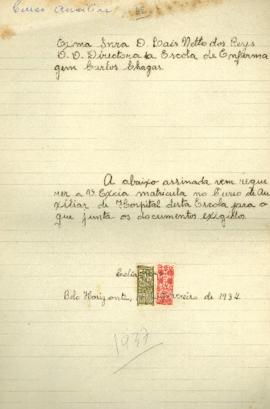 Curso Auxiliar
Exma Snra D. Laís Netto dos Reys
D. D. Directora da Escola de Enferma
gem Carlos Chagas.
A abaixo assinada vem reque
rer a Vª Excia matricula no Curso de Au
xiliar de Hospital desta Escola para o
que junta os documentos exigidos.
Bello Horizonte, de 1934
1937